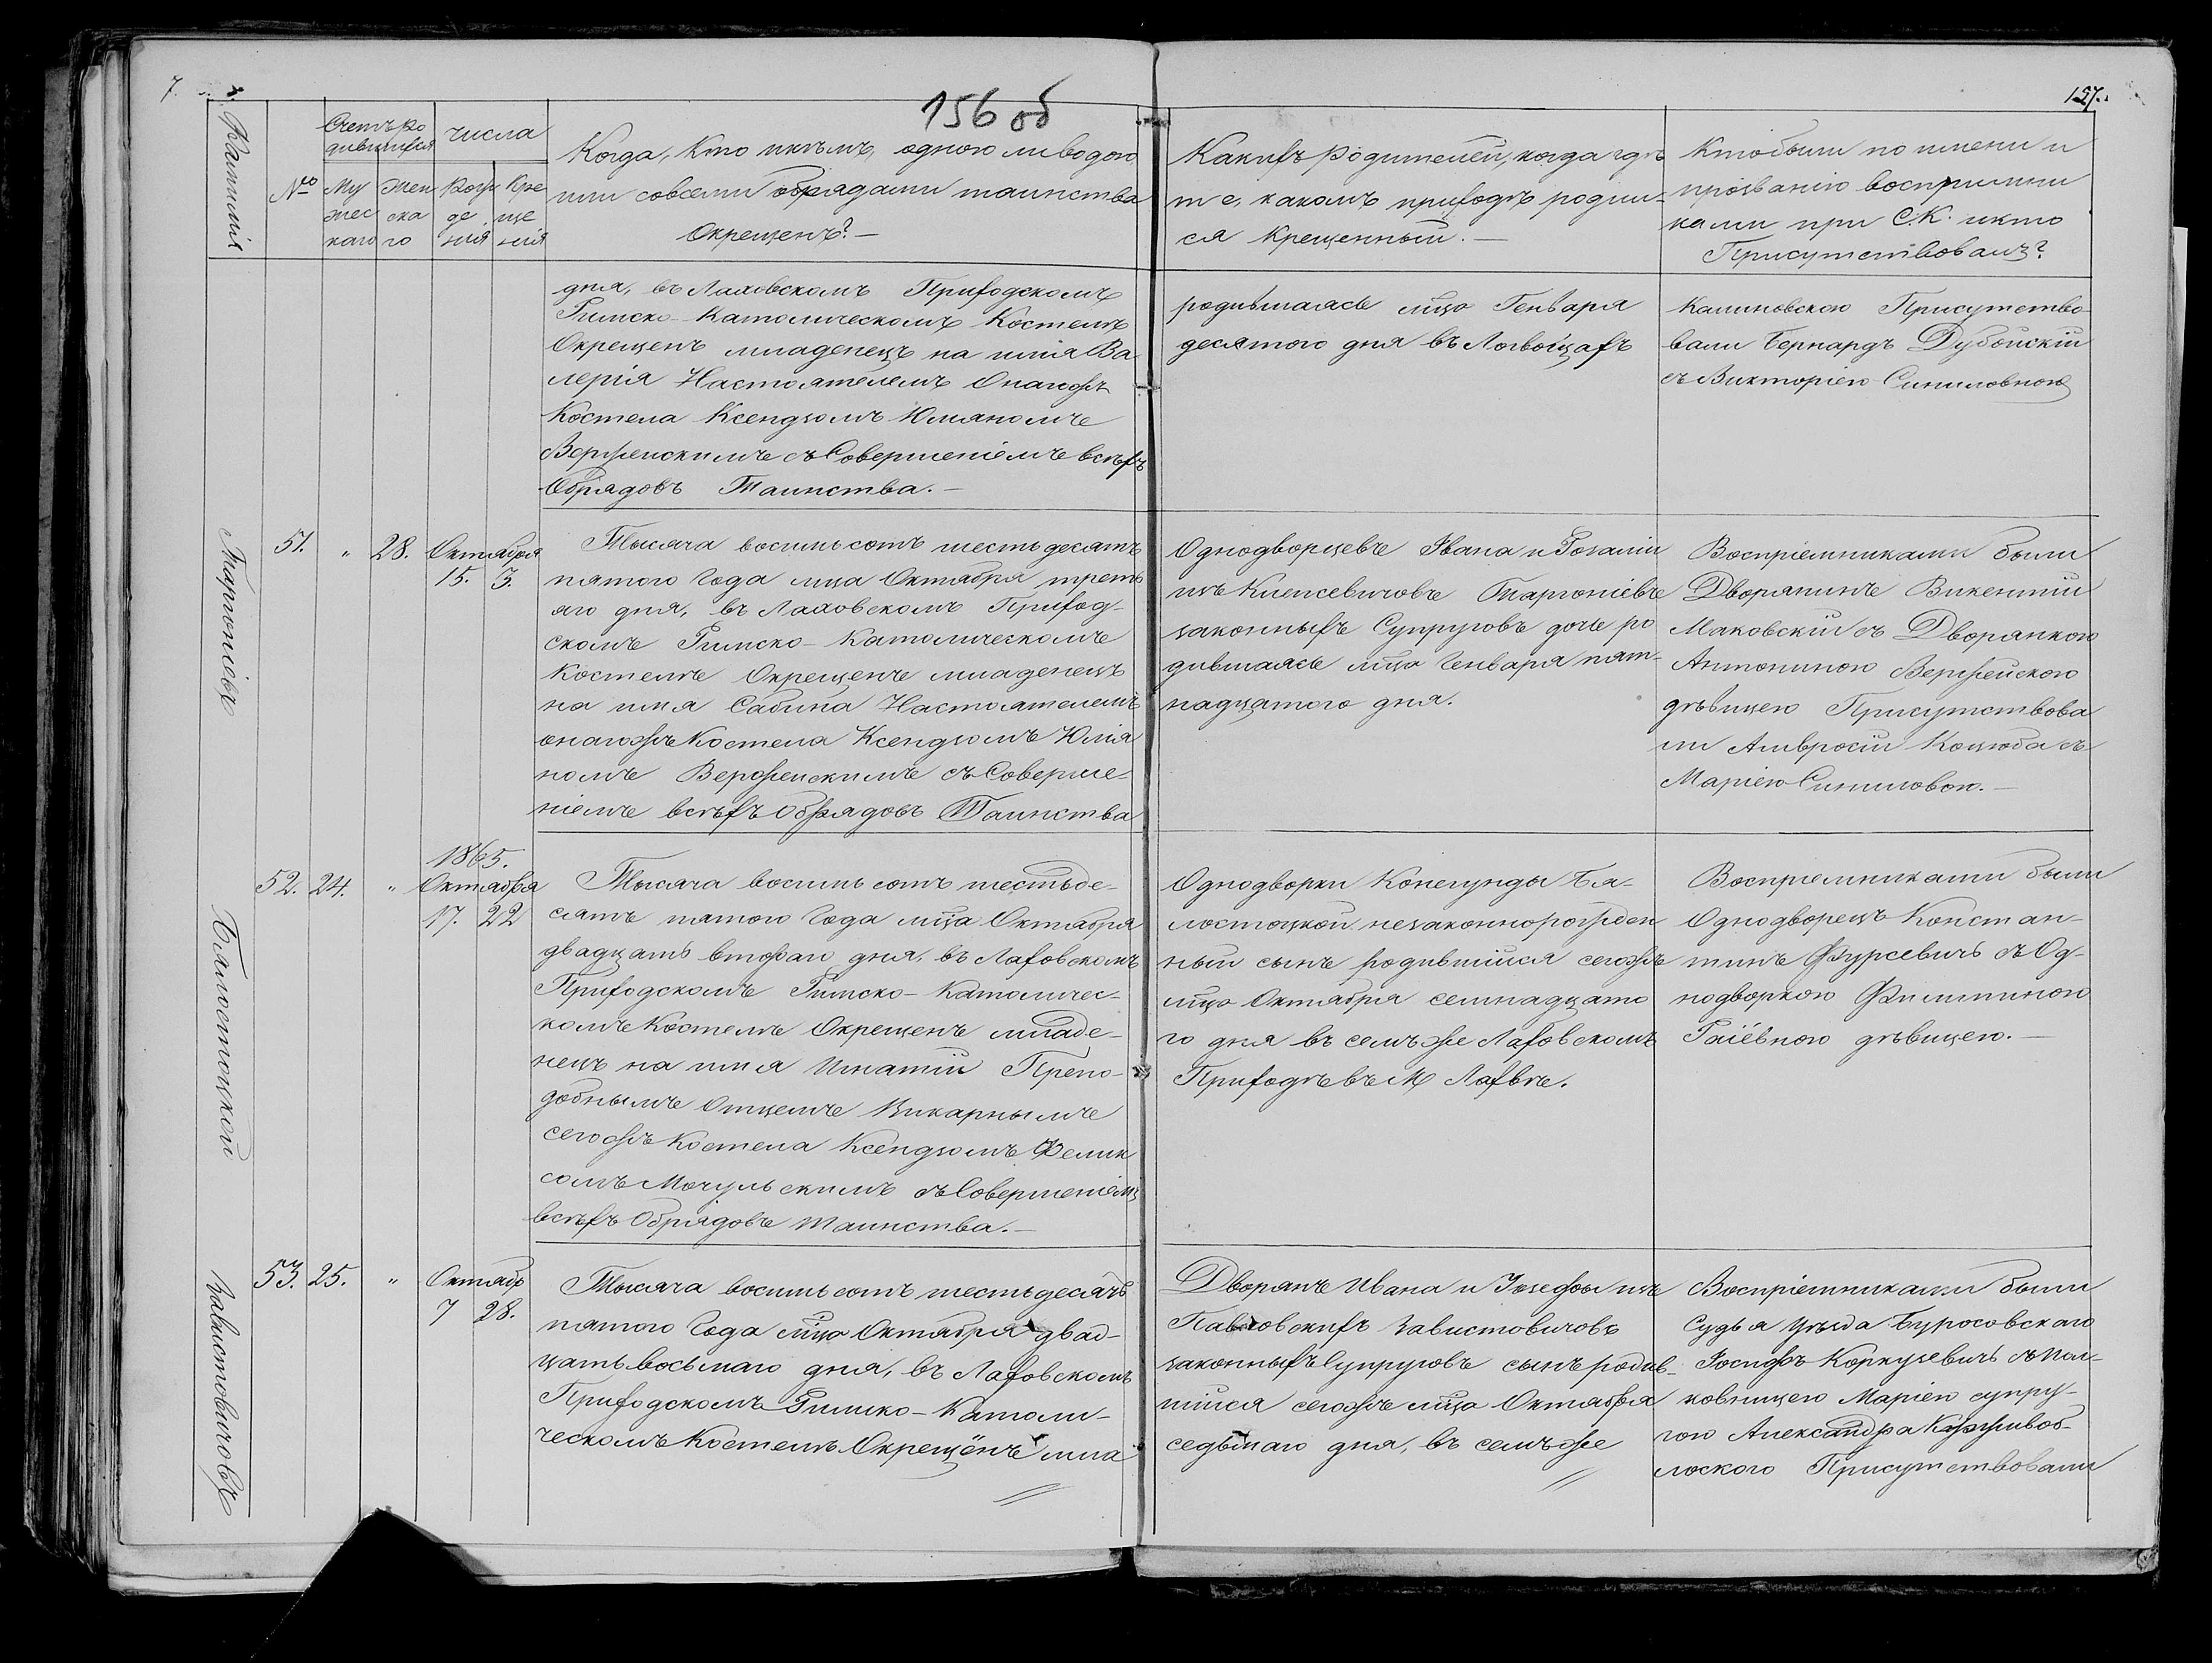 7.
156 об
157.
Фамилія
№
Счетъ ро
дившихся
Му
жес
каго
Жен
ска
го
числа
Рож
де
нія
Кре
ще
нія
Когда, Кто и кѣмъ, одною ли водою
или со всеми обрядами таинства
Окрещенъ? —
Какихъ родителей, когда гдѣ
т е, какомъ приходѣ родил-
ся Крещенный. —
Кто были по имени и
прозванію восприемни
ками при С.К. и кто
Присутствовалъ?
дня, въ Лаховскомъ Приходскомъ
Римско-Католическомъ Костелѣ
Окрещенъ младенецъ на имя Ва
лерія Настоятелемъ Онагожъ
Костела Ксендзомъ Юліаномъ
съ Совершеніемъ всѣхъ
Обрядовъ Таинства. —
родившаяся мца Генваря
десятого дня въ
Калиновскою Присутство
вали Бернардъ Дубойскій
съ Викторіею Синиловною
51. " 28. Октября
15. 3.
Тысяча восимь сотъ шестьдесятъ
пятого Года мца Октября треть
яго дня, въ Лаховскомъ Приход-
скомъ Римско-Католическомъ
Костелѣ Окрещенъ младенецъ
на имя Сабина Настоятелемъ
онагожъ Костела Ксендзомъ Юлія
номъ съ Соверше-
ніемъ всѣхъ Обрядовъ Таинства
Однодворцевъ Ивана и Розаліи
изъ Таргоніевъ
законныхъ Супруговъ дочь ро
дившаяся мца Генваря пят-
надцатого дня.
Воспріемниками были
Дворянинъ Викентій
Маковскій съ Дворянкою
Антониною
дѣвицею Присутствова
ли Амвросій Коцюба съ
Маріею Синиловою. —
Таргоніевъ
1865.
52. 24. " Октября
17. 22
Тысяча восимь сотъ шестьде-
сятъ пятого Года мца Октября
двадцать втораго дня, въ Лаховскомъ
Приходскомъ Римско-Католичес-
комъ Костелѣ Окрещенъ младе-
нецъ на имя Игнатій Препо-
добнымъ Отцемъ Викарнымъ
сегожъ Костела Ксендзомъ Фелик
сомъ Мочульскимъ съ Совершеніемъ
всѣхъ Обрядовъ таинства. —
Однодворки Конегунды Бя-
лостоцкой незаконнорожден
ный сынъ родившійся сегожъ
мца Октября семнадцато
го дня въ семъ же Лаховскомъ
Приходѣ въ М Лахвѣ.
Воспріемниками были
Однодворецъ Констан-
тинъ Фурсевичъ съ Од-
нодворкою Филипиною
дѣвицею. —
Бялостоцкой
53. 25. " Октябр
7 28.
Тысяча восимь сотъ шестьдесятъ
пятого Года мца Октября двад-
цать восьмаго дня, въ Лаховскомъ
Приходскомъ Римско-Католи-
ческомъ Костелѣ Окрещёнъ мла
Дворянъ Ивана и Іозефы изъ
Павловскихъ Завистовичовъ
законныхъ Супруговъ сынъ родив-
шійся сегожъ мца Октября
седьмаго дня, въ семъ же
Воспріемниками были
Судья уѣзда Борисовскаго
Іосифъ Коркузевичъ съ Пол-
ковницею Маріею супру-
гою Александра
Присутствовали
Завистовичовъ